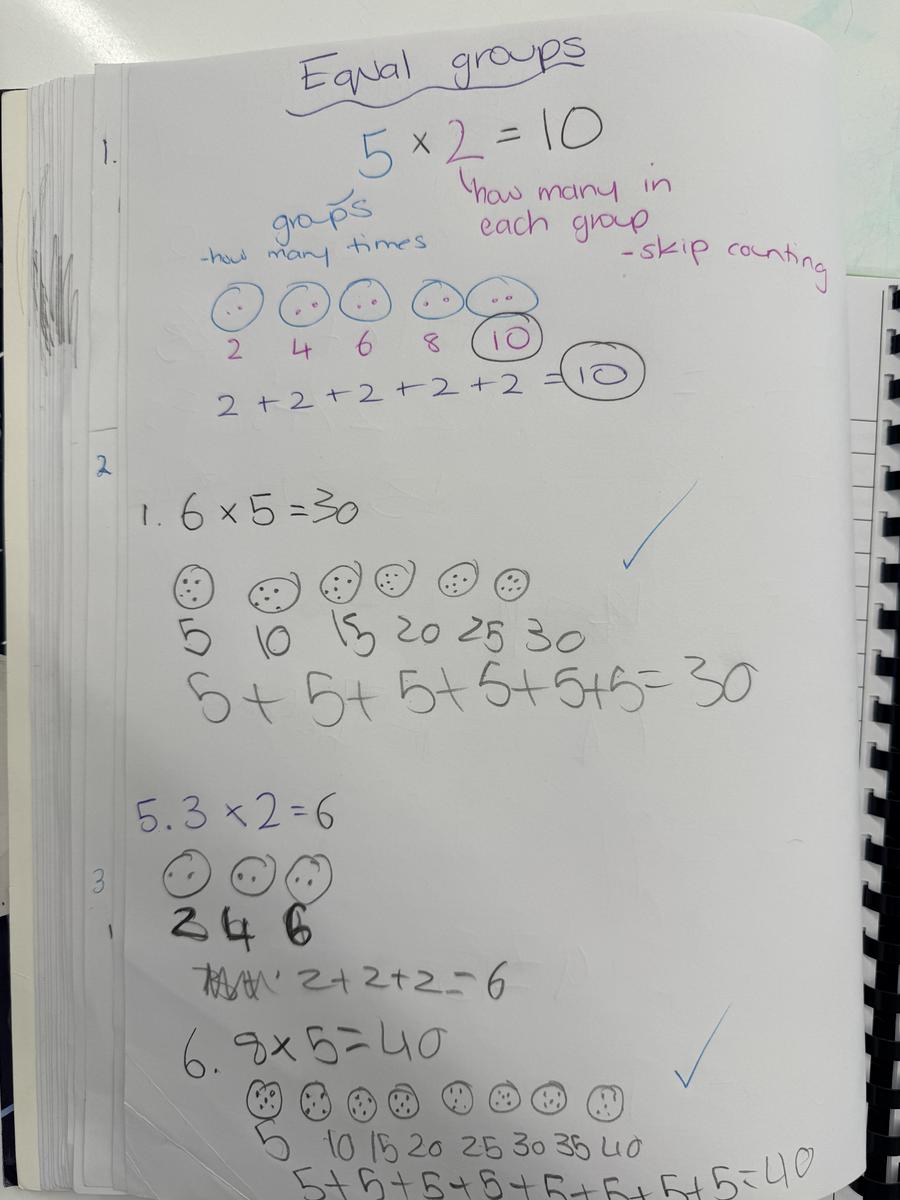 Equal groups
1.
5 × 2 = 10
groups
-how many times
how many in
each group
-skip counting
2 4 6 8 10
2 + 2 + 2 + 2 + 2 = 10
2
1. 6 × 5 = 30
5 10 15 20 25 30
5 + 5 + 5 + 5 + 5 + 5 = 30
5. 3 × 2 = 6
3
2 4 6
1
2 + 2 + 2 = 6
6. 8 × 5 = 40
5 10 15 20 25 30 35 40
5 + 5 + 5 + 5 + 5 + 5 + 5 + 5 = 40